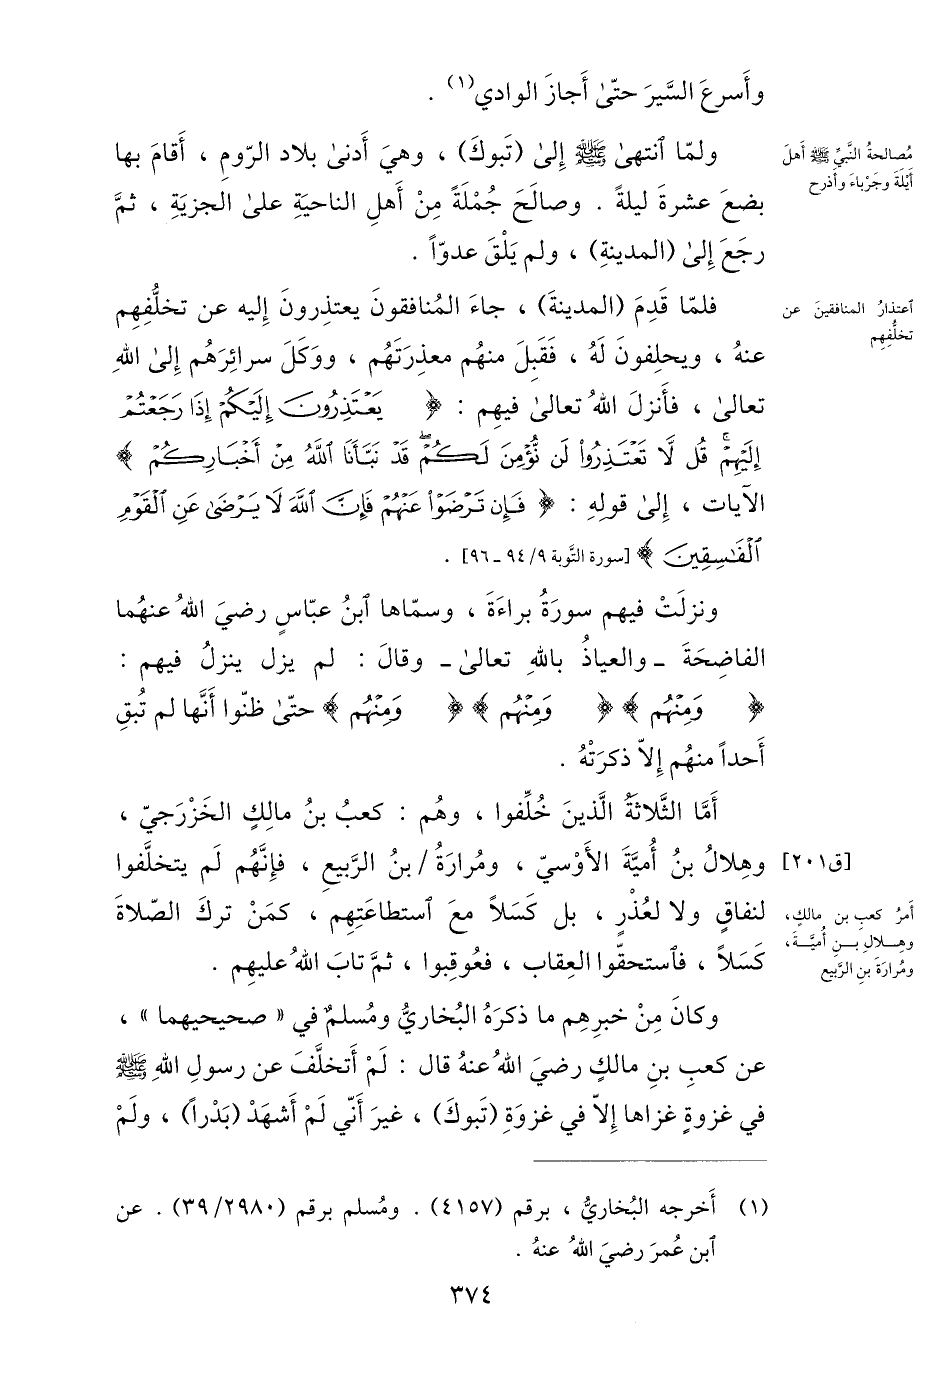 وأَسرعَ السَّيرَ حتّىٰ أَجازَ الوادي(١) .
مُصالحةُ النَّبيِّ ﷺ أَهلَ
أَيْلَةَ وجَرْباءَ وأَذرح
ولمّا ٱنتهىٰ ﷺ إِلىٰ (تَبوكَ) ، وهيَ أَدنىٰ بلاد الرّومِ ، أَقامَ بها
بضعَ عشرةَ ليلةً . وصالَحَ جُمْلَةً مِنْ أَهلِ الناحيَةِ علىٰ الجزيَةِ ، ثمَّ
رجَعَ إِلىٰ (المدينةِ) ، ولم يَلْقَ عدوّاً .
ٱعتذارُ المنافقينَ عن
تخلُّفِهِم
فلمّا قَدِمَ (المدينةَ) ، جاءَ المُنافقونَ يعتذِرونَ إِليه عن تخلُّفِهِم
عنهُ ، ويحلِفونَ لَهُ ، فَقَبِلَ منهُم معذِرَتَهُم ، ووَكَلَ سرائِرَهُم إِلىٰ اللهِ
تعالىٰ ، فأَنزلَ اللهُ تعالىٰ فيهِم : ﴿ يَعْتَذِرُونَ إِلَيْكُمْ إِذَا رَجَعْتُمْ
إِلَيْهِمْ ۚ قُل لَّا تَعْتَذِرُوا۟ لَن نُّؤْمِنَ لَكُمْ ۖ قَدْ نَبَّأَنَا ٱللَّهُ مِنْ أَخْبَارِكُمْ ﴾
الآيات ، إِلىٰ قولِهِ : ﴿ فَإِن تَرْضَوْا۟ عَنْهُمْ فَإِنَّ ٱللَّهَ لَا يَرْضَىٰ عَنِ ٱلْقَوْمِ
ٱلْفَـٰسِقِينَ ﴾ [سورة التَّوبة ٩/ ٩٤ ـ ٩٦] .
ونزلَتْ فيهِم سورَةُ براءَةَ ، وسمّاها ٱبنُ عبّاسٍ رضيَ اللهُ عنهُما
الفاضِحَةَ ـ والعياذُ باللهِ تعالىٰ ـ وقالَ : لم يزل ينزلُ فيهم :
﴿ وَمِنْهُم ﴾ ﴿ وَمِنْهُم ﴾ ﴿ وَمِنْهُم ﴾ حتّىٰ ظنّوا أَنَّها لم تُبقِ
أَحداً منهُم إِلاّ ذكرَتْهُ .
أَمَّا الثَّلاثَةُ الَّذينَ خُلِّفوا ، وهُم : كعبُ بنُ مالِكٍ الخَزْرَجيّ ،
[ق٢٠١] وهِلالُ بنُ أُميَّةَ الأَوْسيّ ، ومُرارَةُ / بنُ الرَّبيعِ ، فإِنَّهُم لَم يتخلَّفوا
أَمرُ كعبِ بن مالكٍ،
وهِلالِ بنِ أُميَّةَ،
ومُرارَةَ بنِ الرَّبيعِ
لنفاقٍ ولا لعُذْرٍ ، بل كَسَلاً معَ ٱستطاعَتِهِم ، كمَنْ تركَ الصّلاةَ
كَسَلاً ، فٱستحقّوا العِقاب ، فعُوقِبوا ، ثمَّ تابَ اللهُ عليهِم .
وكانَ مِنْ خبرِهِم ما ذكرَهُ البُخاريُّ ومُسلمٌ في « صحيحيهما » ،
عن كعبِ بنِ مالكٍ رضيَ اللهُ عنهُ قال : لَمْ أَتخلَّفَ عن رسولِ اللهِ ﷺ
في غزوةٍ غزاها إِلاّ في غزوَةِ (تَبوكَ) ، غيرَ أَنّي لَمْ أَشهَدْ (بَدْراً) ، ولَمْ
(١) أَخرجه البُخاريُّ ، برقم (٤١٥٧) . ومُسلم برقم (٢٩٨٠/ ٣٩) . عن
ٱبن عُمرَ رضيَ اللهُ عنهُ .
٣٧٤